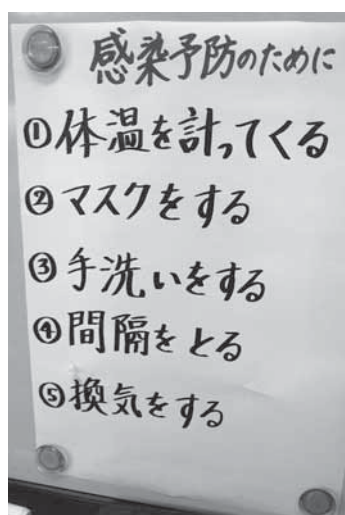 感染予防のために
①体温を計ってくる
②マスクをする
③手洗いをする
④間隔をとる
⑤換気をする